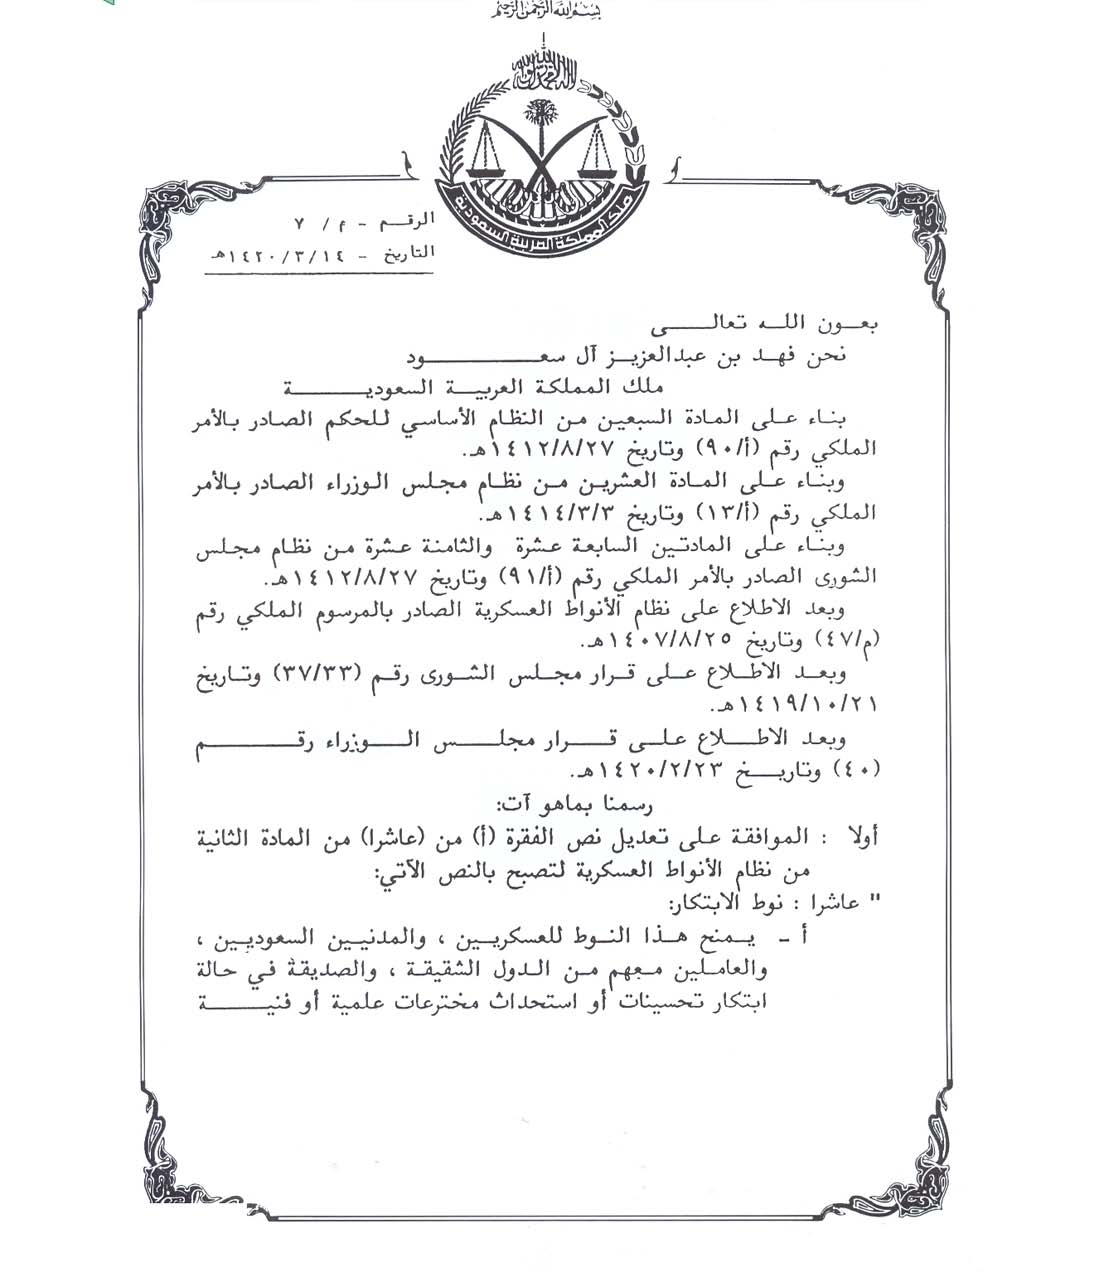 بسم الله الرحمن الرحيم
لا إله إلا الله محمد رسول الله
ملك المملكة العربية السعودية
الرقم - م / ٧
التاريخ - ١٤٢٠/٣/١٤هـ
بعون الله تعالى
نحن فهد بن عبدالعزيز آل سعود
ملك المملكة العربية السعودية
بناء على المادة السبعين من النظام الأساسي للحكم الصادر بالأمر
الملكي رقم (أ/٩٠) وتاريخ ١٤١٢/٨/٢٧هـ.
وبناء على المادة العشرين من نظام مجلس الوزراء الصادر بالأمر
الملكي رقم (أ/١٣) وتاريخ ١٤١٤/٣/٣هـ.
وبناء على المادتين السابعة عشرة والثامنة عشرة من نظام مجلس
الشورى الصادر بالأمر الملكي رقم (أ/٩١) وتاريخ ١٤١٢/٨/٢٧هـ.
وبعد الاطلاع على نظام الأنواط العسكرية الصادر بالمرسوم الملكي رقم
(م/٤٧) وتاريخ ١٤٠٧/٨/٢٥هـ.
وبعد الاطلاع على قرار مجلس الشورى رقم (٣٧/٣٣) وتاريخ
١٤١٩/١٠/٢١هـ.
وبعد الاطلاع على قرار مجلس الوزراء رقم
(٤٠) وتاريخ ١٤٢٠/٢/٢٣هـ.
رسمنا بماهو آت:
أولا : الموافقة على تعديل نص الفقرة (أ) من (عاشرا) من المادة الثانية
من نظام الأنواط العسكرية لتصبح بالنص الآتي:
" عاشرا : نوط الابتكار:
أ - يمنح هذا النوط للعسكريين ، والمدنيين السعوديين ،
والعاملين معهم من الدول الشقيقة ، والصديقة في حالة
ابتكار تحسينات أو استحداث مخترعات علمية أو فنية